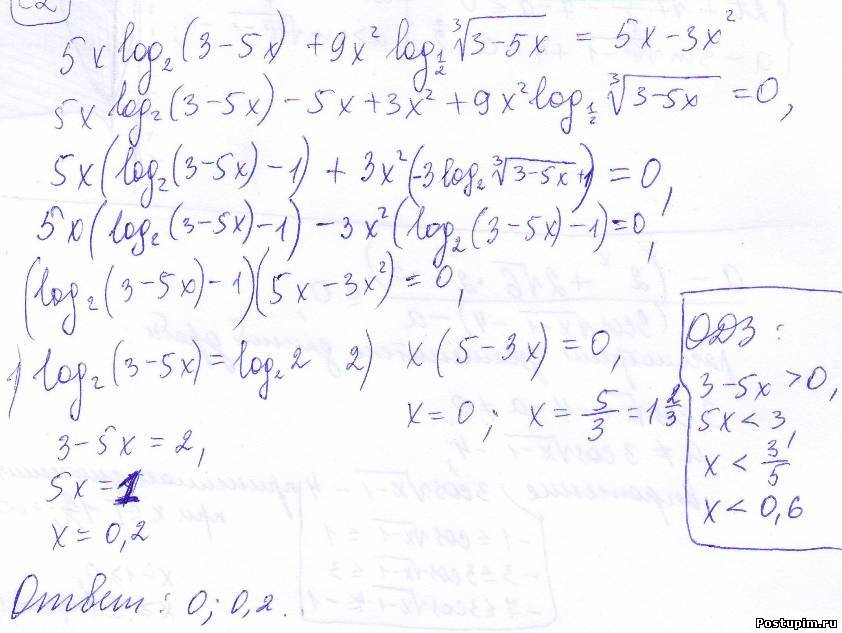 C2
5x log₂(3-5x) + 9x² log_{1/2} ∛(3-5x) = 5x-3x²
5x log₂(3-5x) - 5x + 3x² + 9x² log_{1/2} ∛(3-5x) = 0,
5x(log₂(3-5x)-1) + 3x²(-3log₂ ∛(3-5x)+1) = 0,
5x(log₂(3-5x)-1) - 3x²(log₂(3-5x)-1)=0,
(log₂(3-5x)-1)(5x-3x²) = 0,
1) log₂(3-5x) = log₂2
3-5x = 2,
5x = 1
x = 0,2
2) x(5-3x) = 0,
x = 0; x = 5/3 = 1 2/3
ОДЗ:
3-5x > 0,
5x < 3,
x < 3/5
x < 0,6
Ответ: 0; 0,2.
Postupim.ru